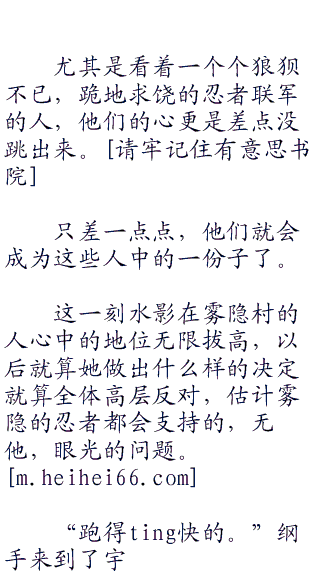 尤其是看着一个个狼狈
不已，跪地求饶的忍者联军
的人，他们的心更是差点没
跳出来。[请牢记住有意思书
院]
只差一点点，他们就会
成为这些人中的一份子了。
这一刻水影在雾隐村的
人心中的地位无限拔高，以
后就算她做出什么样的决定
就算全体高层反对，估计雾
隐的忍者都会支持的，无
他，眼光的问题。
[m.heihei66.com]
“跑得ting快的。”纲
手来到了宇